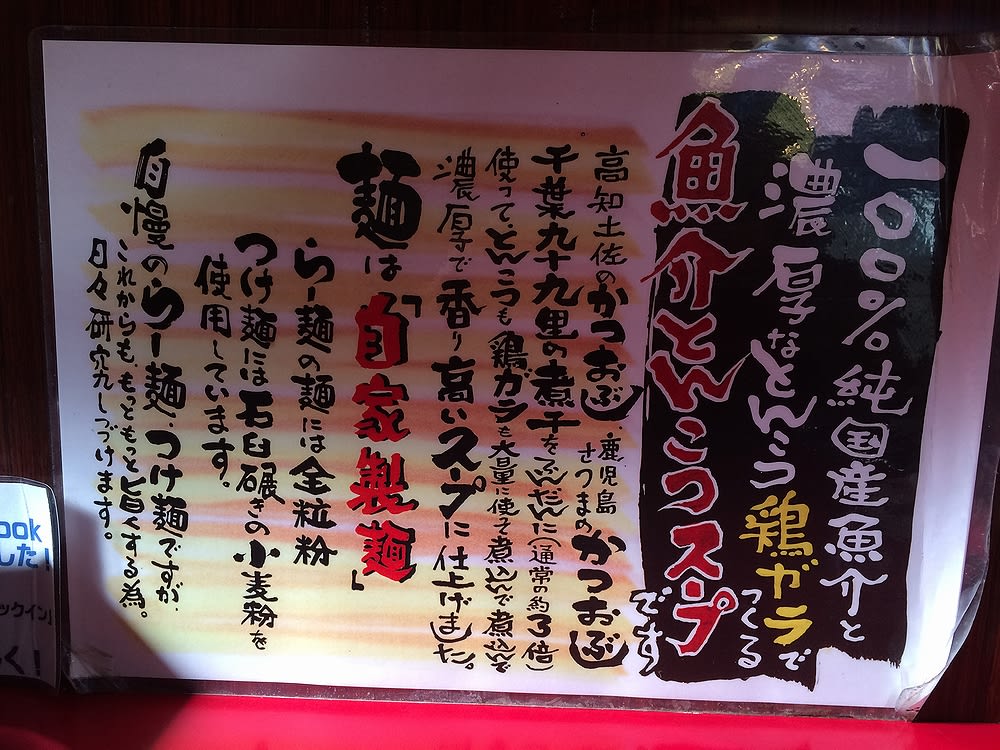 一〇〇%純国産魚介と
濃厚なとんこつ鶏ガラで
つくる
魚介とんこつスープ
です
高知土佐のかつおぶし鹿児島さつまのかつおぶし
千葉九十九里の煮干をふんだんに(通常の約3倍)
使って、とんこつも鶏ガラも大量に使って煮込んで煮込んで
濃厚で香り高いスープに仕上げました。
麺は「自家製麺」
らー麺の麺には全粒粉
つけ麺には石臼碾きの小麦粉を
使用しています。
自慢のらー麺・つけ麺ですが、
これからも、もっともっと旨くする為。
日々研究しつづけます。
ook
した!
ックイン」
く!